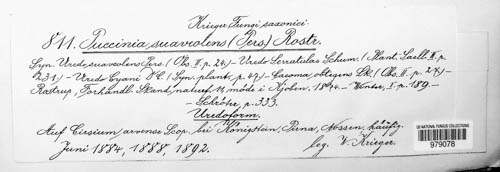 Krieger Fungi saxonici.
811. Puccinia suaveolens (Pers.) Rostr.
Syn. Uredo suaveolens Pers. (Obs. II. p. 24.) – Uredo Serratulae Schum. (Plant. Saell. II. p.
231.) – Uredo Cyani DC. (Syn. plant. p. 47.) – Caeoma obtegens Lk. (Obs. II. p. 27.) –
Rostrup, Forhandl. Skand. naturf. 11. møde i Kjøbn. 1874. – Winter, I. p. 189. –
Schröter p. 333.
Uredoform.
Auf Cirsium arvense Scop. bei Königstein, Pirna, Nossen, häufig.
Juni 1884, 1888, 1892.
leg. W. Krieger.
US NATIONAL FUNGUS COLLECTIONS
979078